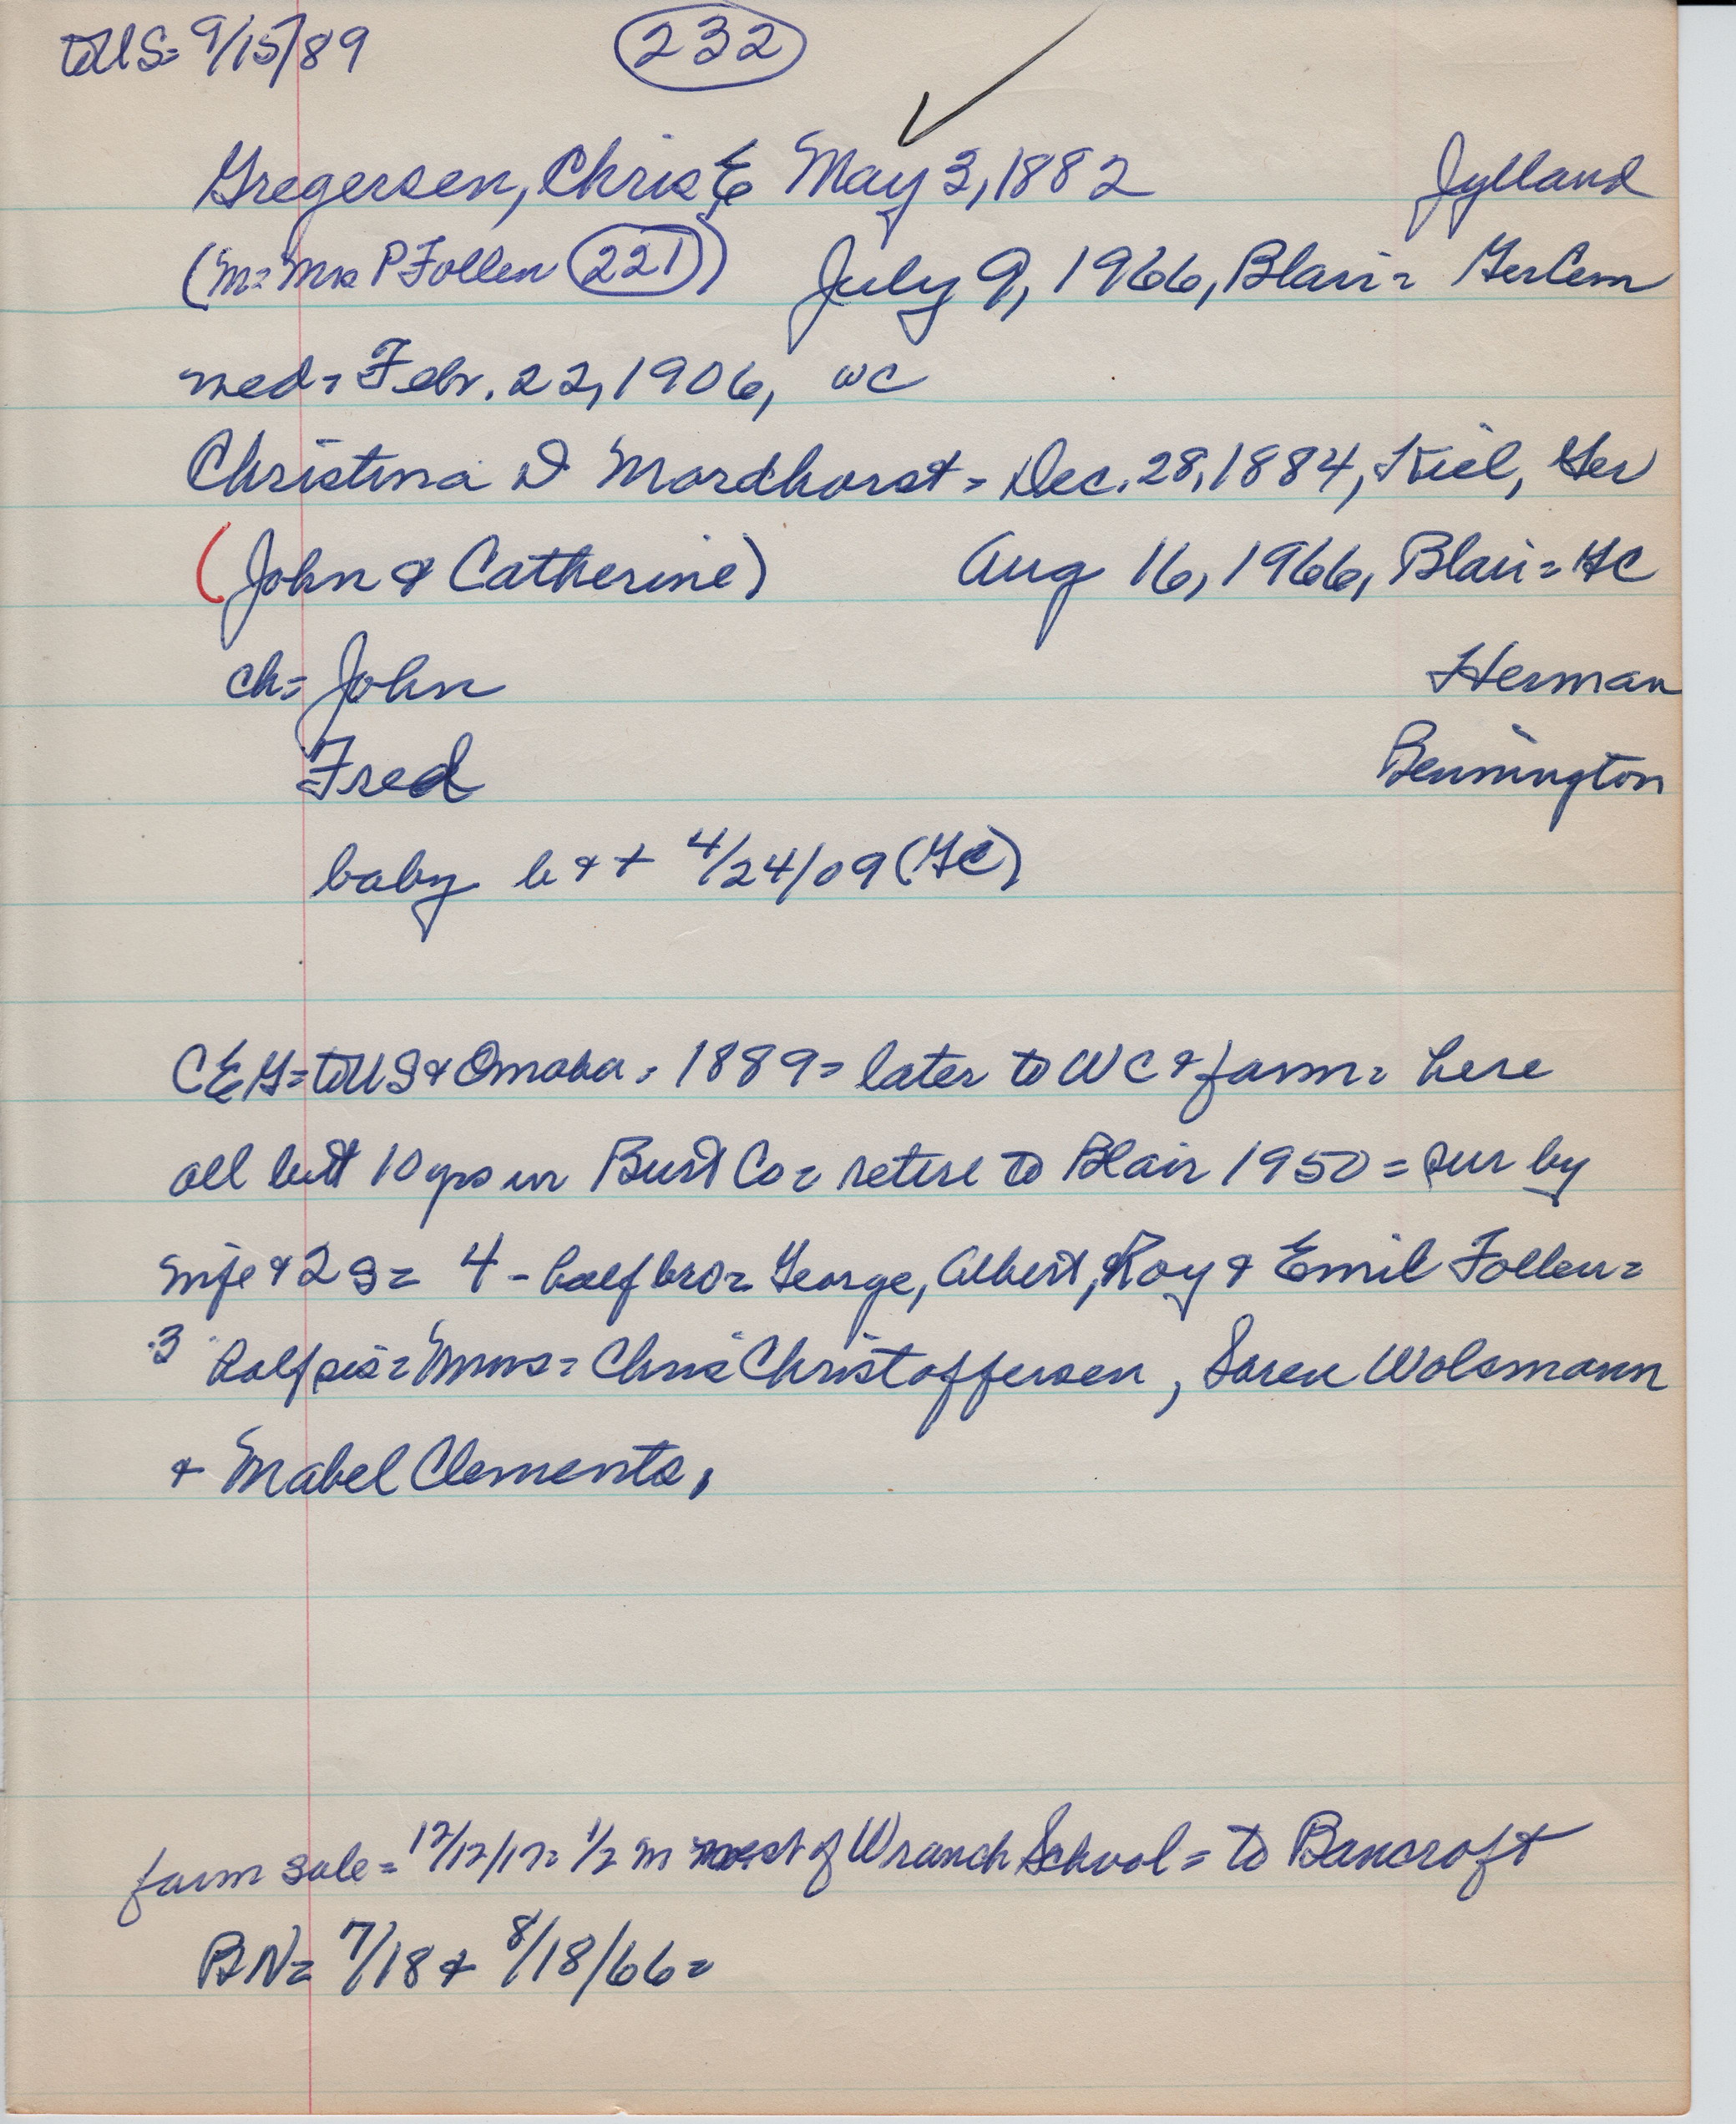 toUS= 9/15/89 232
Gregersen, Chris E May 3, 1882 Jylland
(m= Mrs P Follen 221) July 9, 1966, Blair= GerCem
med= Febr. 22, 1906, WC
Christina D Mordhorst = Dec. 28, 1884, Kiel, Ger
(John & Catherine) Aug 16, 1966, Blair= GC
ch= John Herman
Fred Bennington
baby b & + 4/24/09 (GC)
CEG= toUS & Omaha = 1889= later to WC & farm= here
all but 10 yrs in Burt Co= retire to Blair 1950= sur by
wife & 2 s= 4 - half bro= George, Albert, Roy & Emil Follen=
3 half sis= Mmes= Chris Christoffersen, Soren Wolsmann
& Mabel Clements,
farm sale= 12/12/17= 1/2 m west of W ranch School= to Bancroft
BN= 7/18 & 8/18/66=